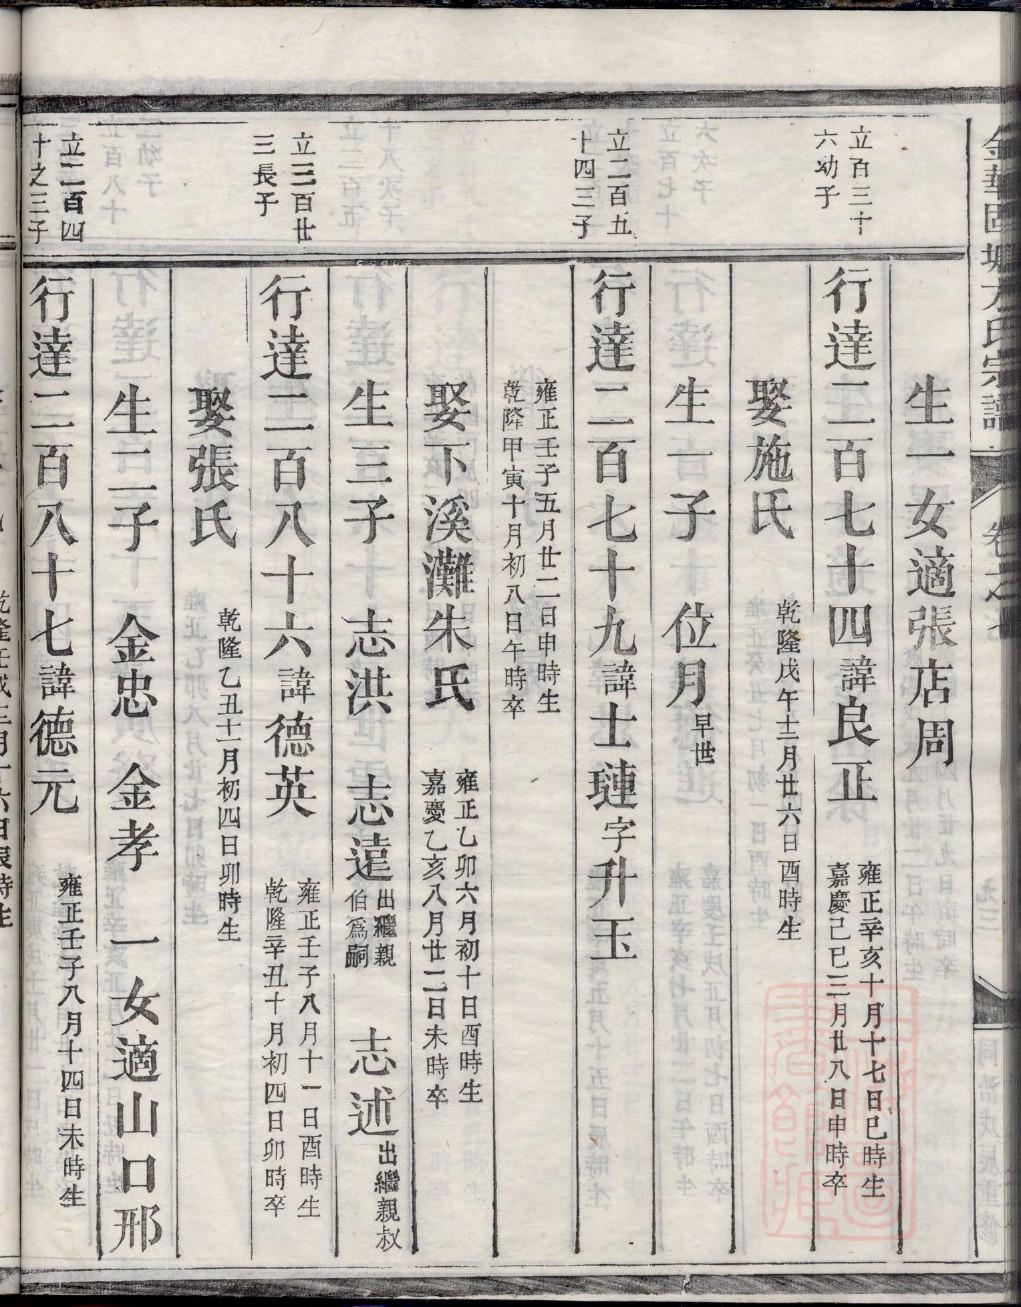 金華國塘方氏宗譜
卷之七
生一女適張店周
立百三十
六幼子
行達二百七十四諱良正
雍正辛亥十月十七日巳時生
嘉慶己巳三月廿八日申時卒
娶施氏
乾隆戊午十二月廿六日酉時生
生一子 位月
早世
立二百五
十四三子
行達二百七十九諱士璉字升玉
雍正壬子五月廿二日申時生
乾隆甲寅十月初八日午時卒
娶下溪灘朱氏
雍正乙卯六月初十日酉時生
嘉慶乙亥八月廿二日未時卒
生三子 志洪 志遠 志述
出繼親
伯爲嗣
出繼親叔
立三百廿
三長子
行達二百八十六諱德英
雍正壬子八月十一日酉時生
乾隆辛丑十月初四日卯時卒
娶張氏
乾隆乙丑十一月初四日卯時生
生二子 金忠 金孝 一女適山口邢
立二百四
十之三子
行達二百八十七諱德元
雍正壬子八月十四日未時生